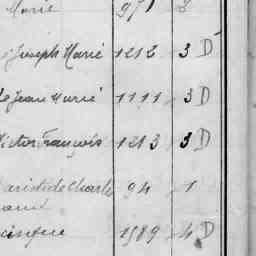 Marie 971
Joseph Marie 1212 3 D
Jean Marie 1111 3 D
Victor François 1213 3 D
Aristide Charle 94 1
1989 4 D